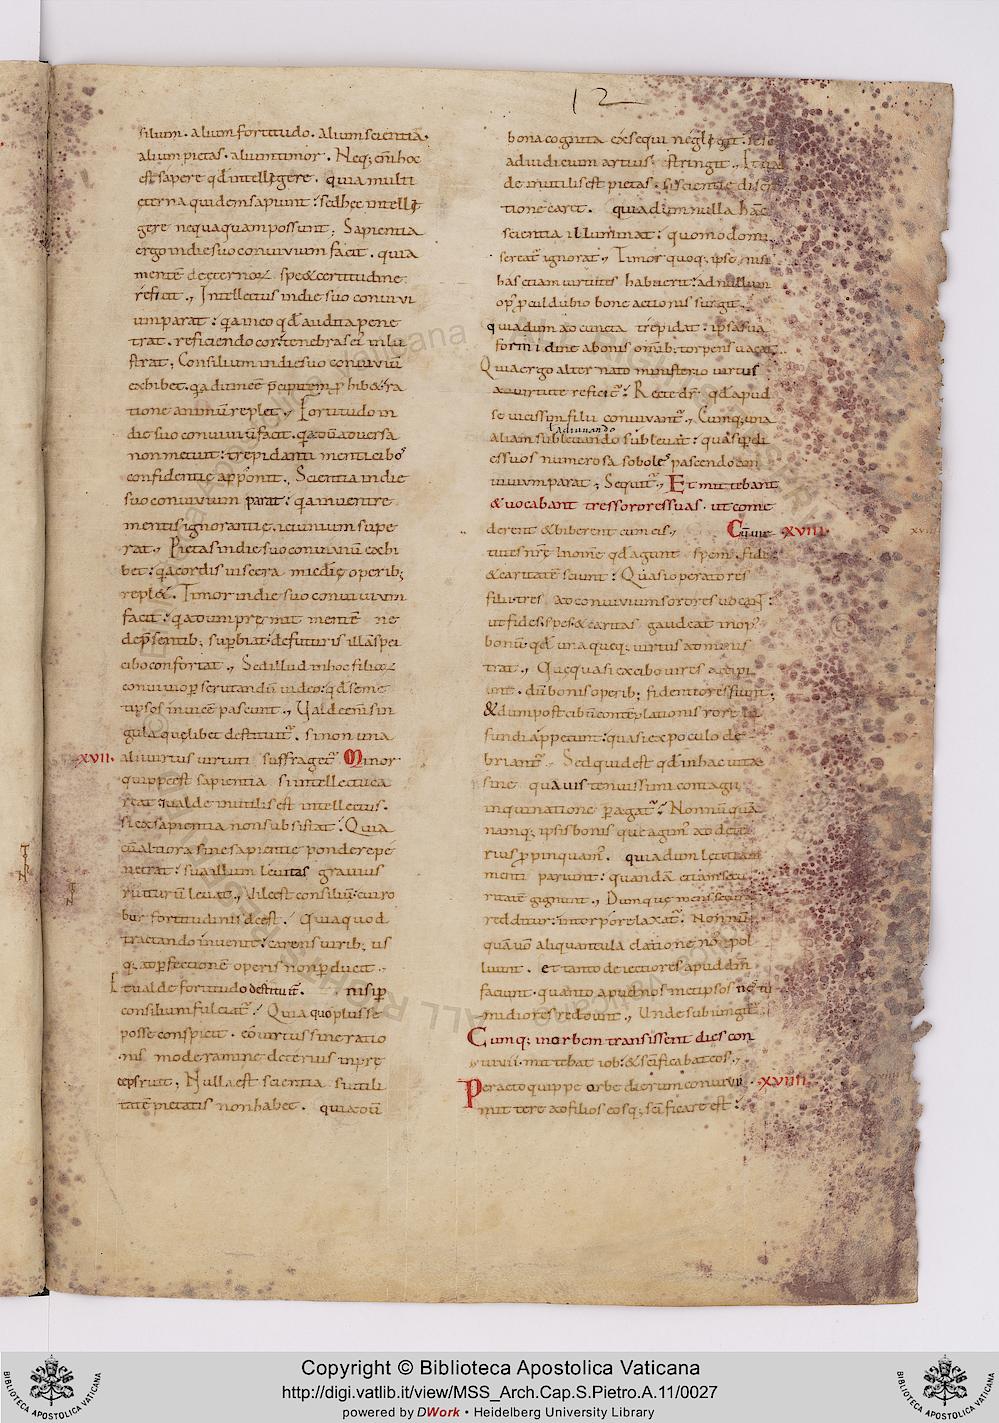 12
silium. aliumfortitudo. aliumscientiā.
aliumpietas. aliumtimor. Neq; enī hoc
est sapere qđ intelligere. quia multi
eterna quidem sapiunt: sed hec intelli
gere nequaquam possunt. Sapientia
ergo indie suo conuiuium facit. quia
mentē de eternoꝝ spe & certitudine
reficit. Intellectus indie suo conuiui
um parat: qa ineo qđ audita pene
trat. reficiendo cor. tenebras ei' inlu
strat; Consilium indie suo conuiuiū
exhibet. qa dum eē p̄cipitem ꝓhibet. ra
tione animū replet. Fortitudo in
die suo conuiuiū facit. qa dū aduersa
non metuit: trepidanti menti cibos
confidentie apponit. Scientia indie
suo conuiuium parat: qa inuentre
mentis ignorantie. ieiunium supe
rat. Pietas indie suo conuiuiū exhi
bet: qa cordis uiscera miclię operib;
replet. Timor indie suo conuiuium
facit: qa dum premit mentē ne
de p̄sentib; supbiat. de futuris illā spei
cibo confortat. Sed illud inhoc filioꝝ
conuiuio pscrutandū uideo: qđ semet
ipsos inuicē pascunt. Ualde enī sin
gula quelibet destituit̄. si non una
xvii. ali uirtus uirtuti suffraget̄ Minor
quippe est sapientia si intellectu ca
reat. ualde inutilis est intellectus.
si ex sapientia non subsistat. Quia
cū altiora sine sapientie pondere pe
netrat: sua illum leuitas grauius
ruiturū leuat. Uile est consiliū: cui ro
bur fortitudinis deest. Quia quod
tractando inuenit: carens uirib; us
q; ad pfectionē operis non pducit.
Et ualde fortitudo destituit̄. nisi p
consilium fulciat̄. Quia quo plus se
posse conspicit. eo uirtus sine ratio
nis moderamine deterius inpre
ceps ruit; Nulla est scientia si utili
tatē pietatis non habet. quia cū
bona cognita exsequi negligit. sese
ad iudicium artius stringit. Et ual
de inutilis est pietas. si scientie discr
tione caret. quia dum nulla hāc
scientia illuminat: quomodo mi
sereat̄ ignorat. Timor quoq; ipse nisi
has etiam uirtutes habuerit: ad nullum
op' pcul dubio bone actionis surgit.
quia dum ad cuncta trepidat: ipsa sua
formidine a bonis omīb; torpens uacat.
Quia ergo alternato ministerio uirtus
a uirtute reficit̄: Recte dr̄. qđ apud
se uicissim filii conuiuant̄. Cumq; una
adiuuando
aliam subleuando subleuat: quasi p di
es suos numerosa soboles pascendo con
uiuium parat; Sequit̄. Et mittebant
& uocabant tres sorores suas. ut come
derent & biberent cum eis. Cū uir xviii.
tutes nr̄e In omē qđ agunt spem. fidē
& caritatē sciunt: Quasi operatores
filii tres ad conuiuium sorores uocant:
ut fides spes & caritas gaudeat in op'
bonū qđ unaqueq; uirtus adminis
trat. Que quasi ex cibo uires accipi
unt. dū bonis operib; fidentiores fiunt;
& dum post cibū contēplationis rore in
fundi appetunt: quasi ex poculo de
briant̄. Sed quid est qđ inhac uita
sine quauis tenuissimi contagii
inquinatione pagat̄? Nonnūquā
namq; ipsis bonis que agimˀ ad dete
rius ppinquam'. quia dum letitiam
menti pariunt: quandā etiam secu
ritatē gignunt. Dumque mens secura
redditur: in torpore laxat̄. Nonnū
quā uō aliquantula elatione nos pol
luunt. et tanto deiectiores apud dm̄
faciunt. quanto apud nos metipsos tu
midiores reddunt. Unde subiungit̄.
Cumq; inorbem transissent dies con
uiuii. mittebat iob: & scīficabat eos.
Peracto quippe orbe dierum conuiuii. xviiii.
mittere ad filios eosq; scīficare est:
Copyright © Biblioteca Apostolica Vaticana
http://digi.vatlib.it/view/MSS_Arch.Cap.S.Pietro.A.11/0027
powered by DWork • Heidelberg University Library
BIBLIOTECA APOSTOLICA VATICANA
BIBLIOTECA APOSTOLICA VATICANA